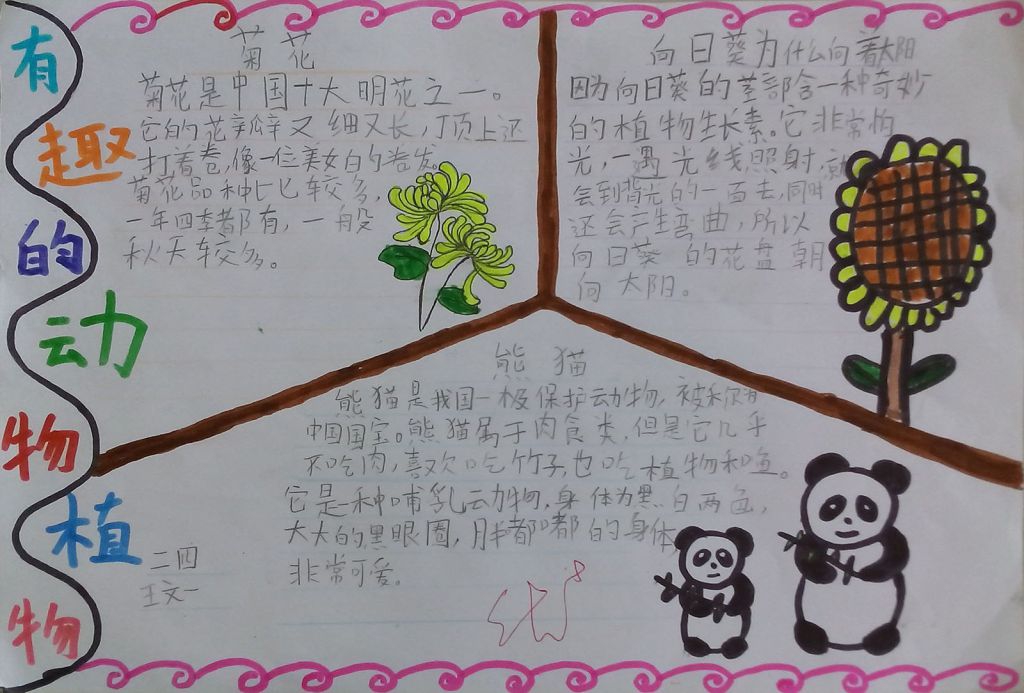 有趣的动物植物
菊花
菊花是中国十大明花之一。
它的花瓣又细又长,顶上还
打着卷,像一位美女的卷发。
菊花品种比较多,
一年四季都有,一般
秋天较多。
向日葵为什么向着太阳
因为向日葵的茎部含一种奇妙
的植物生长素。它非常怕
光,一遇光线照射,就
会到背光的一面去,同时
还会产生弯曲,所以
向日葵的花盘朝
向太阳。
熊猫
熊猫是我国一极保护动物,被称为
中国国宝。熊猫属于肉食类,但是它几乎
不吃肉,喜欢吃竹子,也吃植物和鱼。
它是一种哺乳动物,身体为黑白两色,
大大的黑眼圈,胖都嘟的身体,
非常可爱。
二四
王文一